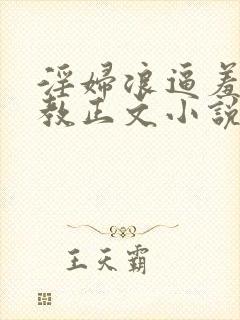 淫婦浪逼羞
教正文小說
王天霸